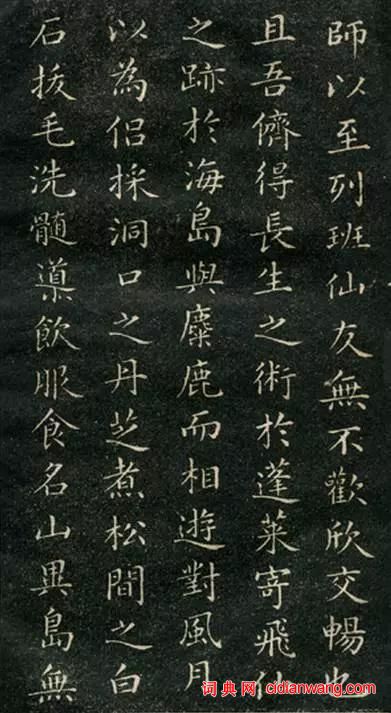 師以至列班仙友無不歡欣交暢也
且吾儕得長生之術於蓬萊寄飛仙
之跡於海島與麋鹿而相遊對風月
以為侶採洞口之丹芝煮松間之白
石拔毛洗髓導飲服食名山異島無
词典网:cidianwang.com